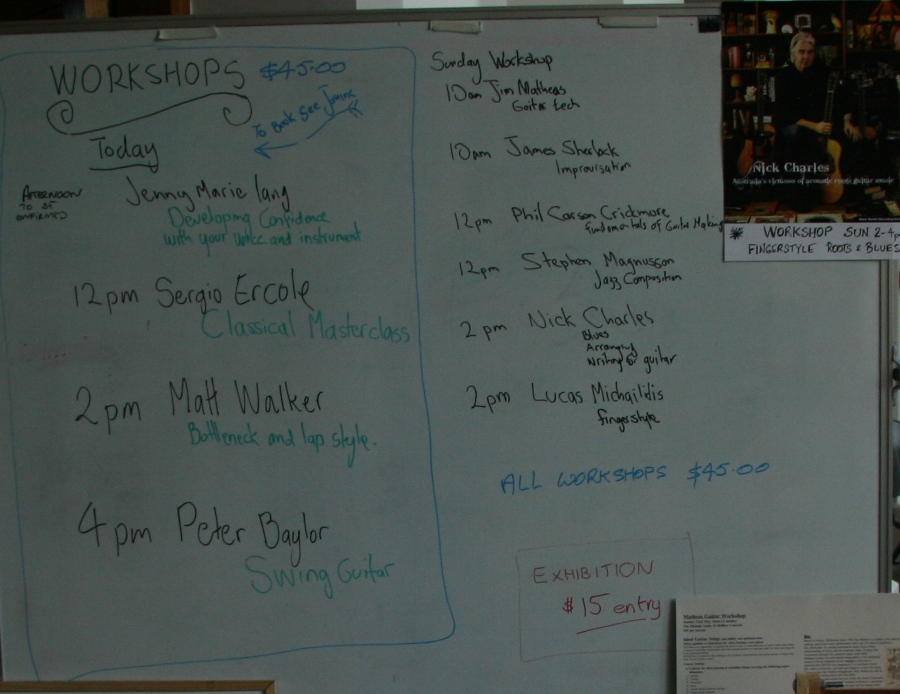 WORKSHOPS $45.00
To Book See
Today
AFTERNOON
TO BE
CONFIRMED
Jenny Marie lang
Developing Confidence
with your voice and instrument
12pm Sergio Ercole
Classical Masterclass
2pm Matt Walker
Bottleneck and lap style.
4pm Peter Baylor
Swing Guitar
Sunday Workshop
10am Jim Matheas
Guitar tech
10am James Sherlock
Improvisation
12pm Phil Carson Crickmore
Fundamentals of Guitar Making
12pm Stephen Magnusson
Jazz Composition
2pm Nick Charles
Blues
Arranging
Writing for guitar
2pm Lucas Michailidis
fingerstyle
ALL WORKSHOPS $45.00
EXHIBITION
$15 entry
Nick Charles
Australia's virtuoso of acoustic roots guitar music
* WORKSHOP SUN 2-4p
FINGERSTYLE ROOTS & BLUES
Guitar Workshop